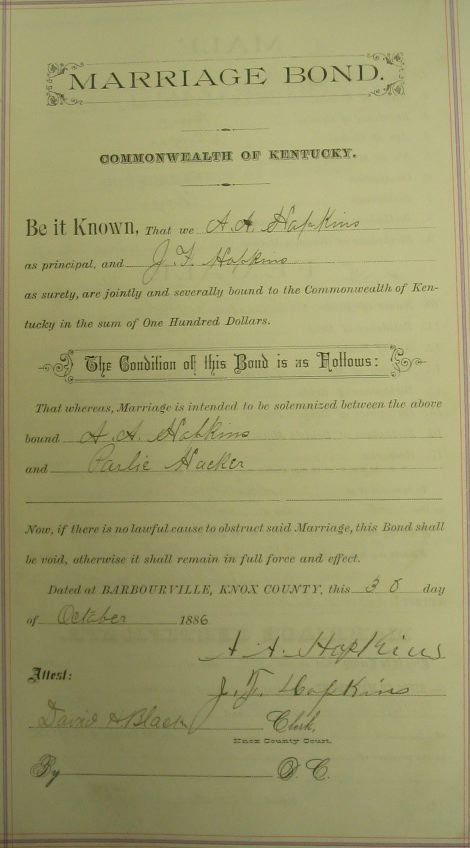 MARRIAGE BOND.
COMMONWEALTH OF KENTUCKY.
Be it Known, That we A. A. Hopkins
as principal, and J. F. Hopkins
as surety, are jointly and severally bound to the Commonwealth of Ken-
tucky in the sum of One Hundred Dollars.
The Condition of this Bond is as Follows:
That whereas, Marriage is intended to be solemnized between the above
bound A. A. Hopkins
and Parlie Hacker
Now, if there is no lawful cause to obstruct said Marriage, this Bond shall
be void, otherwise it shall remain in full force and effect.
Dated at BARBOURVILLE, KNOX COUNTY, this 30 day
of October 1886
A. A. Hopkins
Attest:
J. F. Hopkins
David Black Clerk,
Knox County Court.
By D. C.